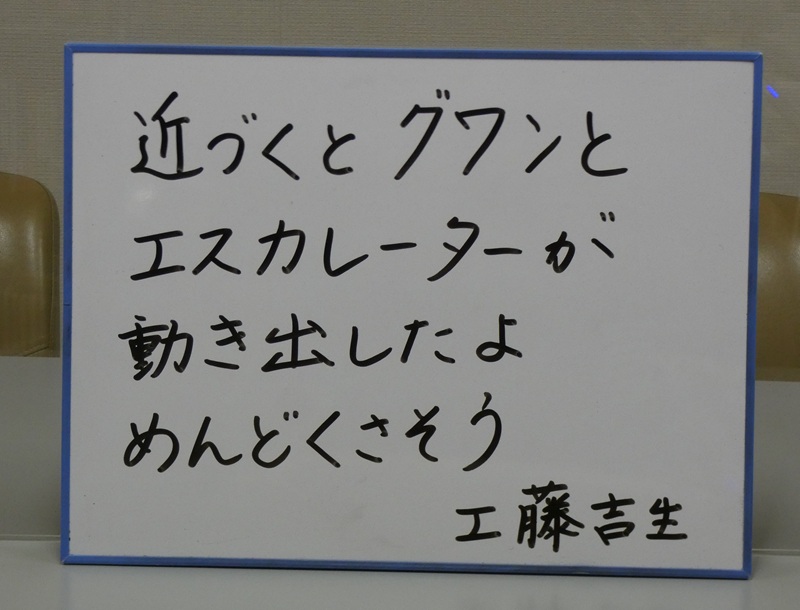 近づくと グワンと
エスカレーターが
動き出したよ
めんどくさそう
工藤吉生